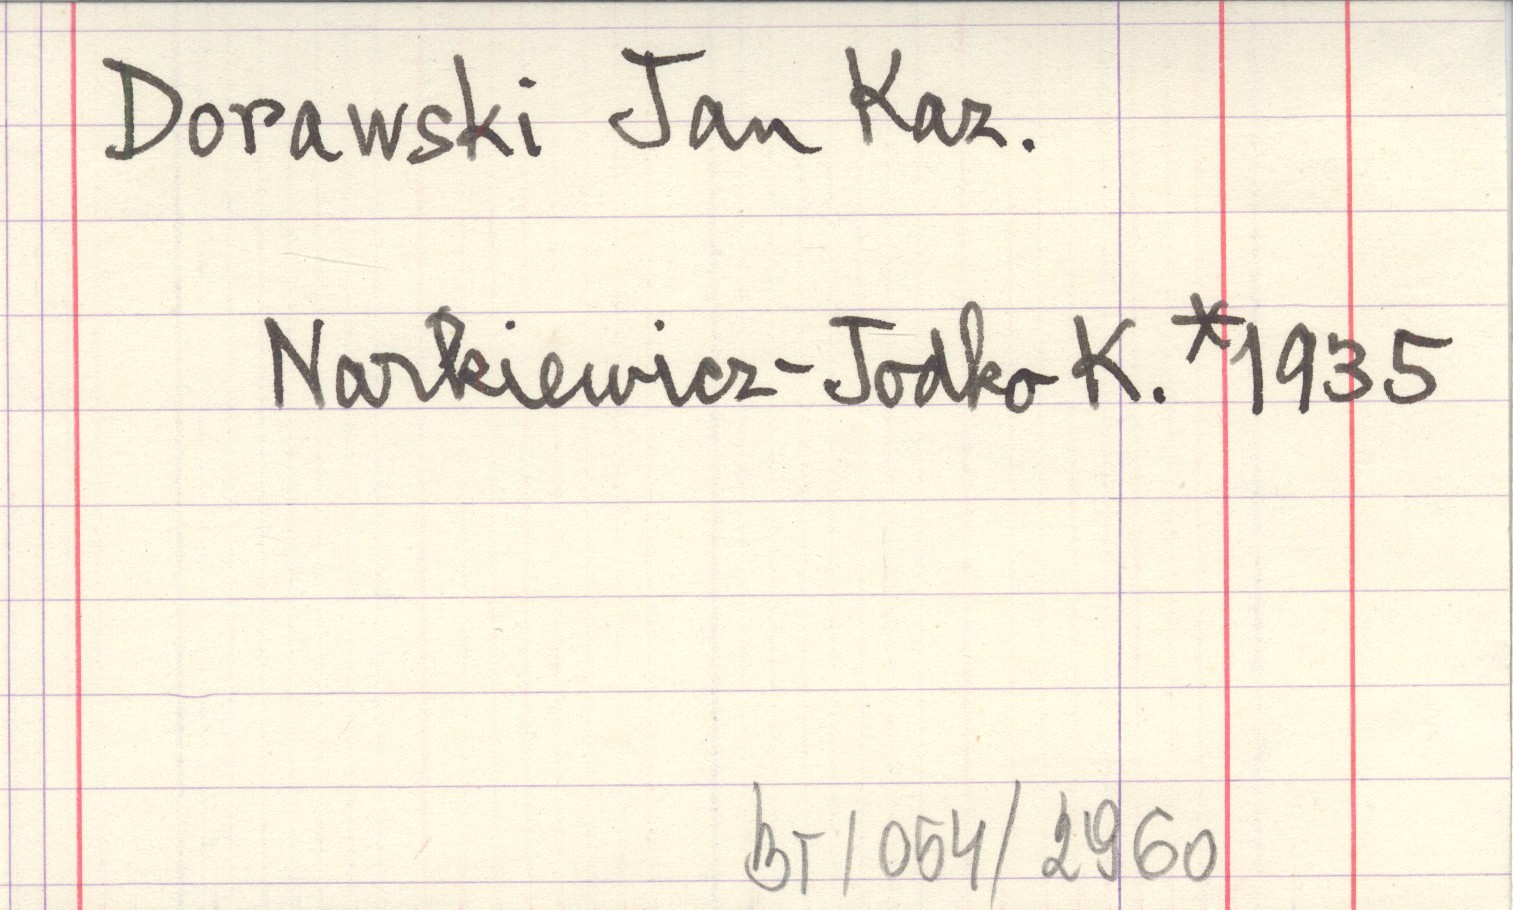 Dorawski Jan Kaz.
Narkiewicz-Jodko K. *1935
BT/054/2960